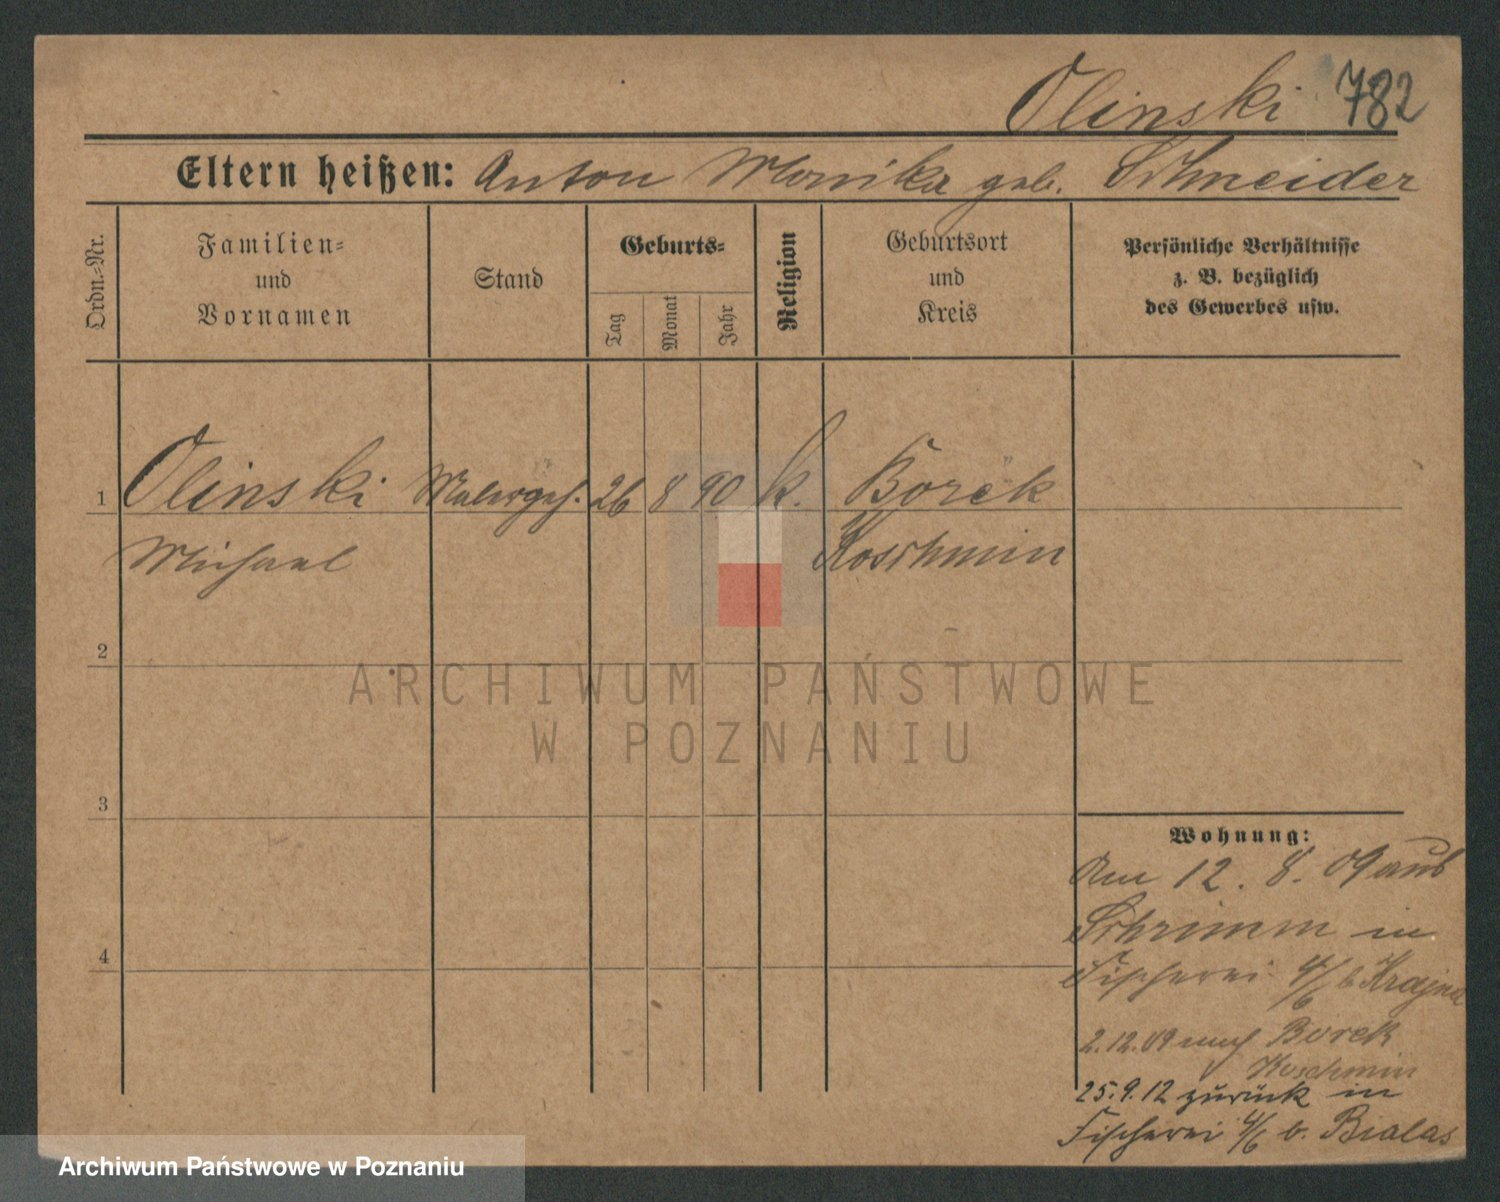 Olinski 782
Eltern heißen: Anton Monika geb. Schneider
Ordn.-Nr.
Familien-
und
Vornamen
Stand
Geburts-
Tag
Monat
Jahr
Religion
Geburtsort
und
Kreis
Persönliche Verhältnisse
z. B. bezüglich
des Gewerbes usw.
1 Olinski Malergeh. 26 8 90 k. Borek
Michael Koschmin
2
3
4
Wohnung:
Am 12. 8. 09 aus
Schrimm in
Fischerei 4/6 b Krajna
2.12.09 nach Borek
Koschmin
25.9.12 zurück in
Fischerei 4/6 b. Bialas
ARCHIWUM PAŃSTWOWE
W POZNANIU
Archiwum Państwowe w Poznaniu